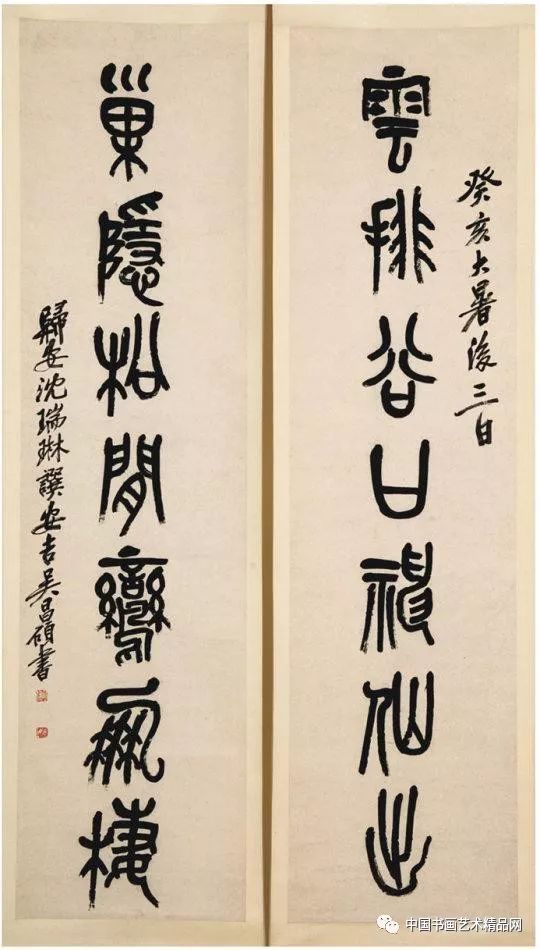 癸亥大暑後三日
雲排谷口神仙出
巢隱松間鸞鳳棲
歸安沈瑞琳譔安吉吴昌碩書
中国书画艺术精品网